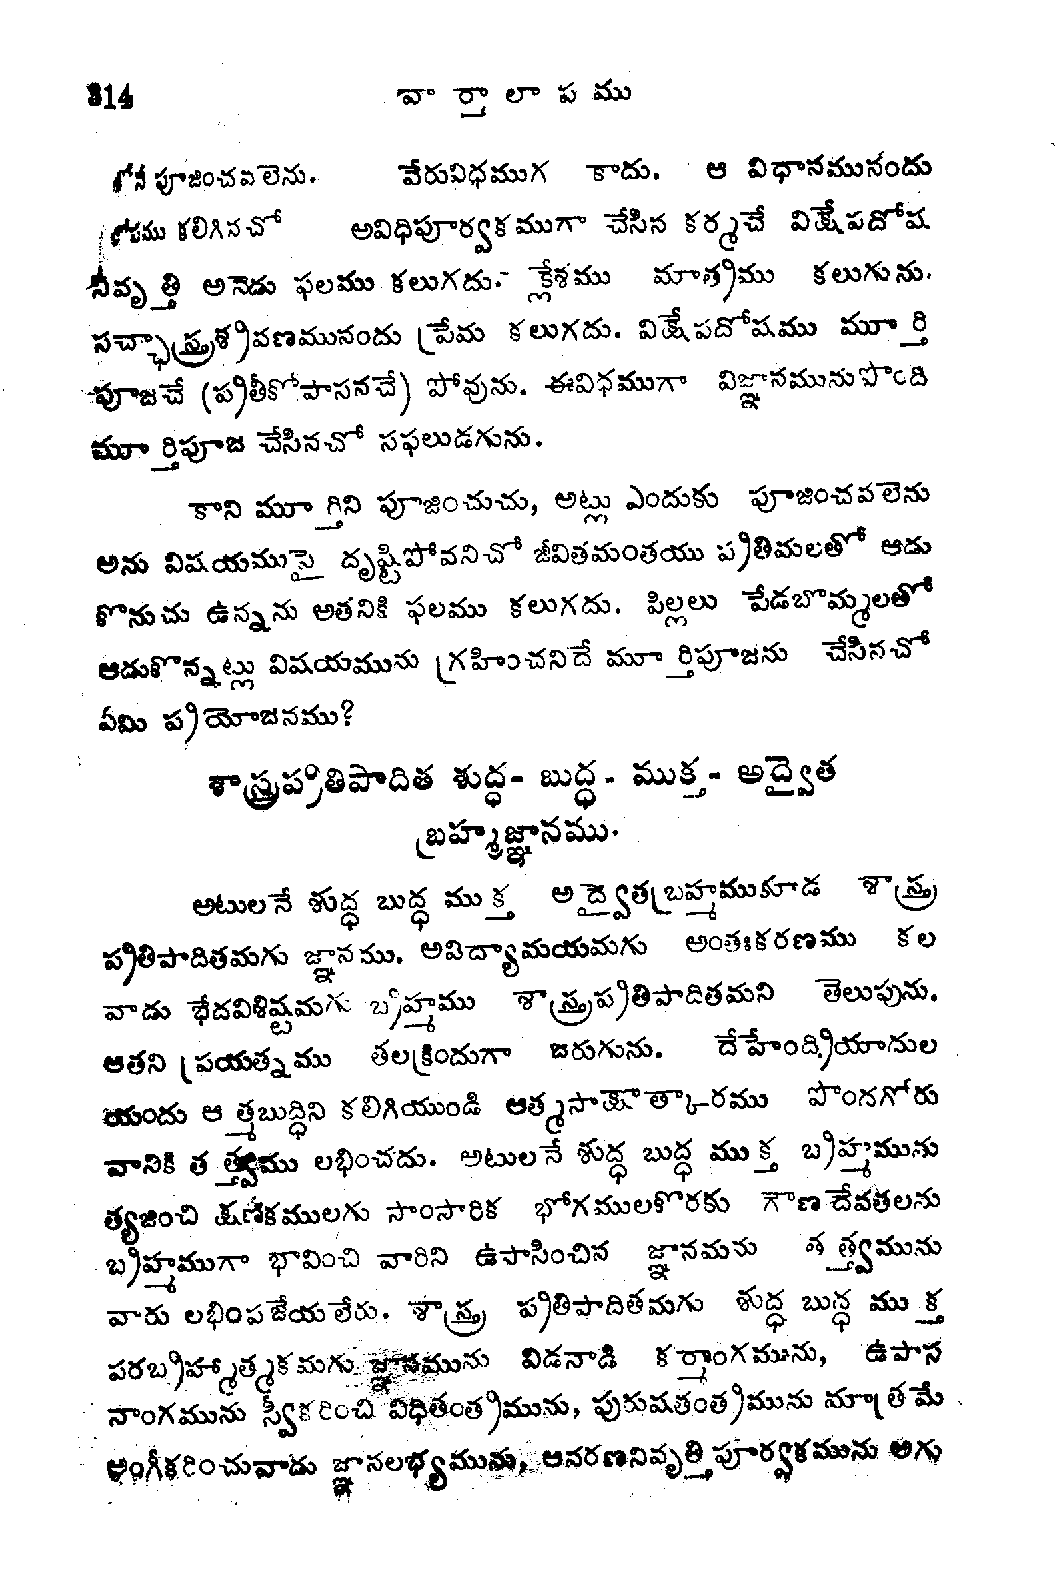 314 వార్తాలాపము
పూజించవలెను. వేరువిధముగ కాదు. ఆ విధానమునందు
కలిగినచో అవిధిపూర్వకముగా చేసిన కర్మచే విక్షేపదోష
నివృత్తి అనెడు ఫలము కలుగదు. క్లేశము మాత్రము కలుగును.
సచ్ఛాస్త్రశ్రవణమునందు ప్రేమ కలుగదు. విక్షేపదోషము మూర్తి
పూజచే (ప్రతీకోపాసనచే) పోవును. ఈవిధముగా విజ్ఞానమునుపొంది
మూర్తిపూజ చేసినచో సఫలుడగును.
కాని మూర్తిని పూజించుచు, అట్లు ఎందుకు పూజించవలెను
అను విషయముపై దృష్టిపోవనిచో జీవితమంతయు ప్రతిమలతో ఆడు
కొనుచు ఉన్నను అతనికి ఫలము కలుగదు. పిల్లలు పేడబొమ్మలతో
ఆడుకొన్నట్లు విషయమును గ్రహించనిదే మూర్తిపూజను చేసినచో
ఏమి ప్రయోజనము?
శాస్త్రప్రతిపాదిత శుద్ధ- బుద్ధ - ముక్త - అద్వైత
బ్రహ్మజ్ఞానము.
అటులనే శుద్ధ బుద్ధ ముక్త అద్వైతబ్రహ్మముకూడ శాస్త్ర
ప్రతిపాదితమగు జ్ఞానము. అవిద్యామయమగు అంతఃకరణము కల
వాడు భేదవిశిష్టమగు బ్రహ్మము శాస్త్రప్రతిపాదితమని తెలుపును.
అతని ప్రయత్నము తలక్రిందుగా జరుగును. దేహేంద్రియాదుల
యందు ఆత్మబుద్ధిని కలిగియుండి ఆత్మసాక్షాత్కారము పొందగోరు
వానికి తత్త్వము లభించదు. అటులనే శుద్ధ బుద్ధ ముక్త బ్రహ్మమును
త్యజించి క్షణికములగు సాంసారిక భోగములకొరకు గౌణదేవతలను
బ్రహ్మముగా భావించి వారిని ఉపాసించిన జ్ఞానమను తత్త్వమును
వారు లభింపజేయలేరు. శాస్త్ర ప్రతిపాదితమగు శుద్ధ బుద్ధ ముక్త
పరబ్రహ్మాత్మకమగు జ్ఞానమును విడనాడి కర్మాంగమును, ఉపాస
నాంగమును స్వీకరించి విధితంత్రమును, పురుషతంత్రమును మాత్రమే
అంగీకరించువాడు జ్ఞానలభ్యమును, ఆవరణనివృత్తిపూర్వకమును అగు